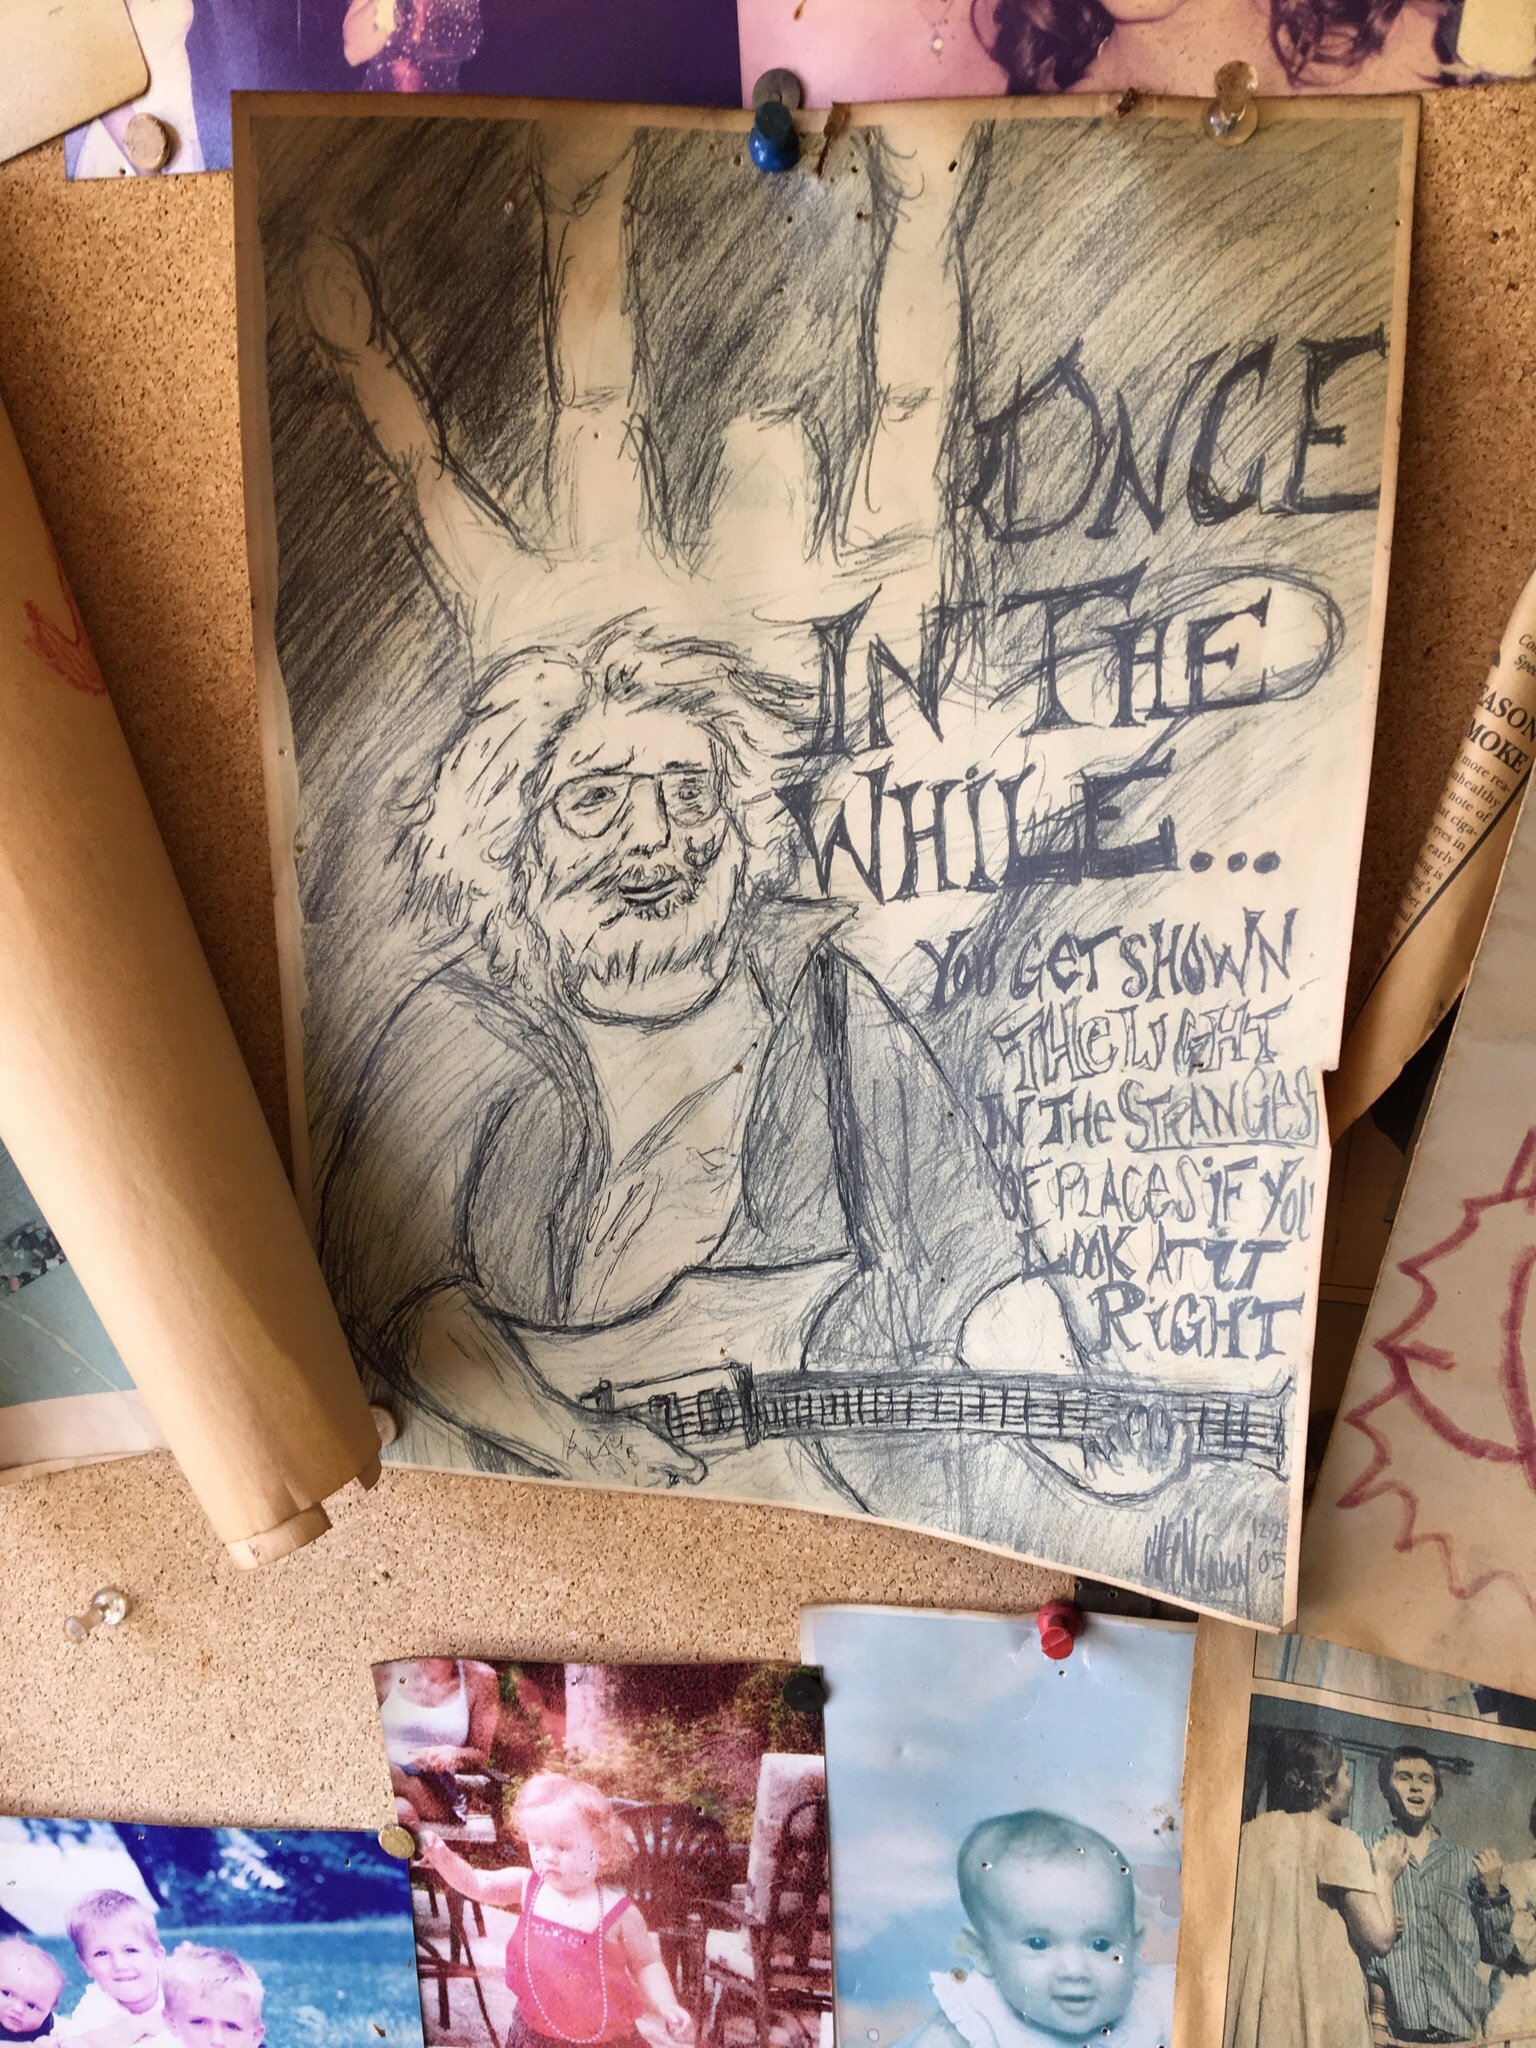 ONCE
IN THE
WHILE...
YOU GET SHOWN
THE LIGHT
IN THE STRANGES
OF PLACES iF YOU
LOOK AT iT
RiGHT
05
EASON
MOKE
more rea-
note of
eyes in
early